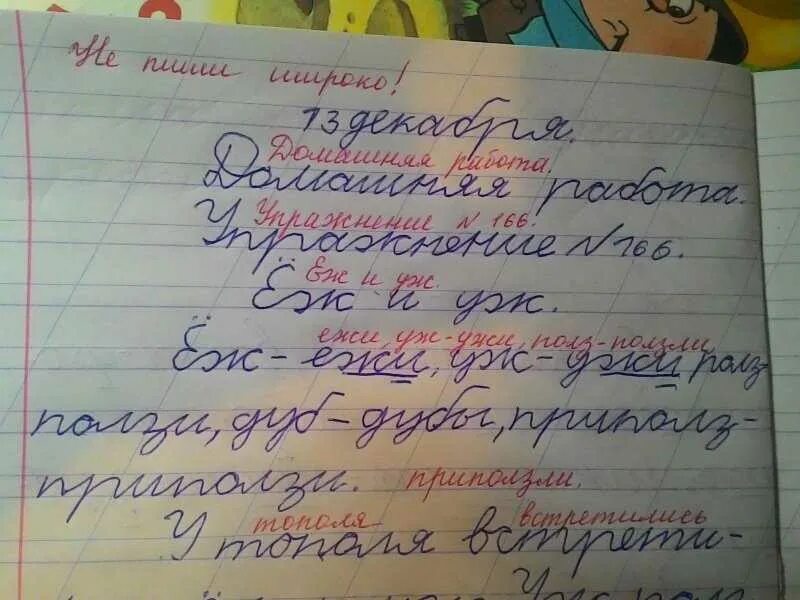 Не пиши широко!
13 декабря.
Домашняя работа.
Домашняя работа.
Упражнение N 166.
Упражнение N 166.
Еж и уж.
Ёж и уж.
ежи, уж-ужи, полз-ползли,
Ёж - ежи, уж - ужи полз-
ползи, дуб - дубы, приполз-
приползи. приползли.
тополя встретились
У тополя встрети-
Уж полз